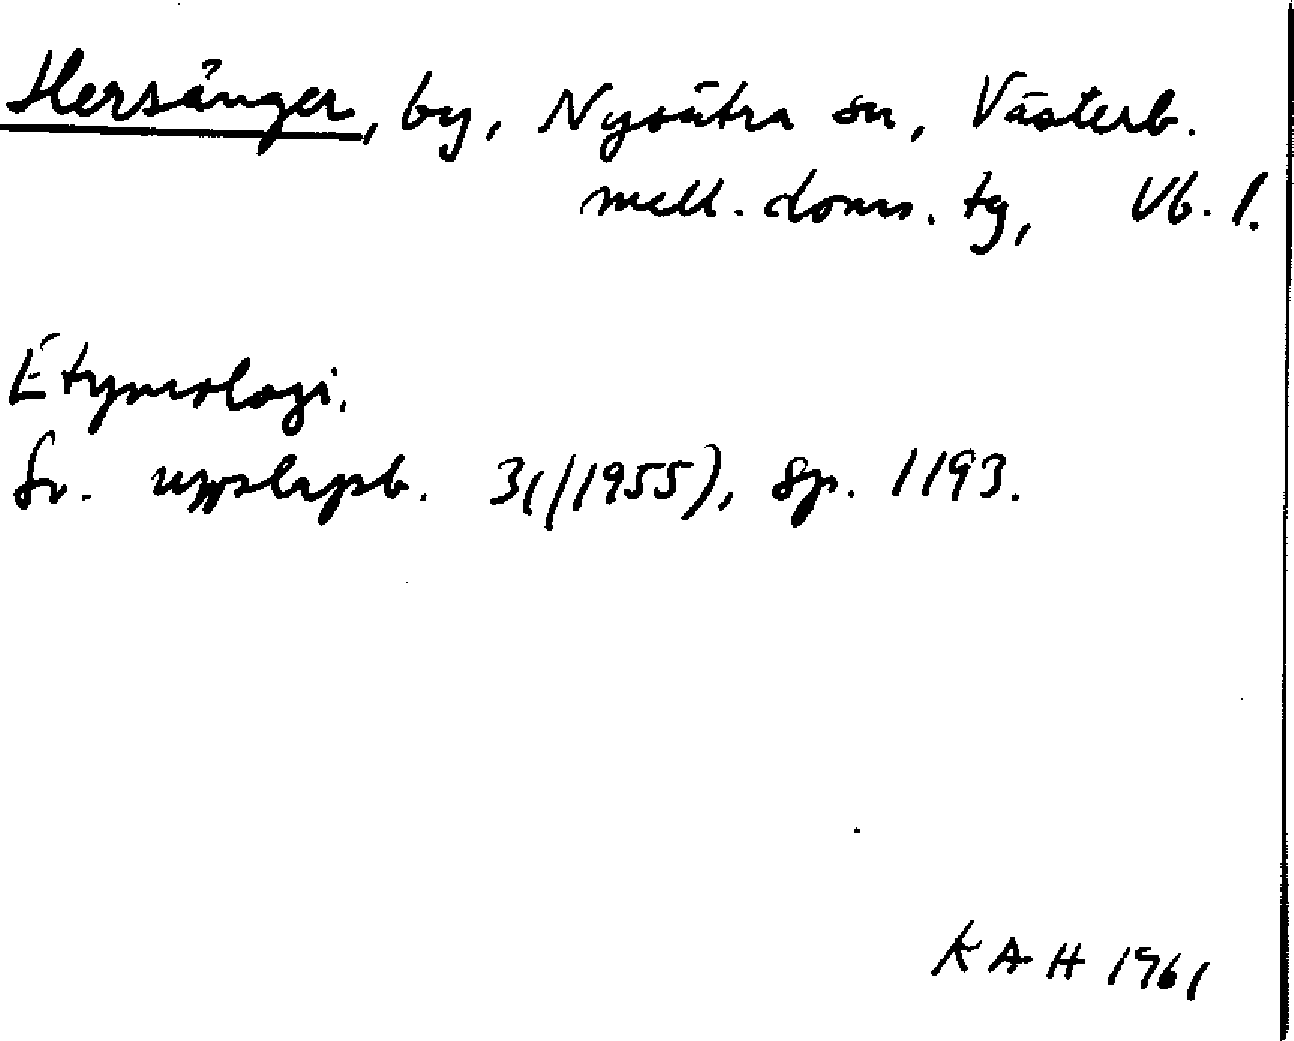 Hersånger, by, Nysätra sn, Västerb.
mell. doms. tg, Vb. l.
Etymologi.
Sv. uppslagsb. 3(/1955), sp. 1193.
KAH 1961